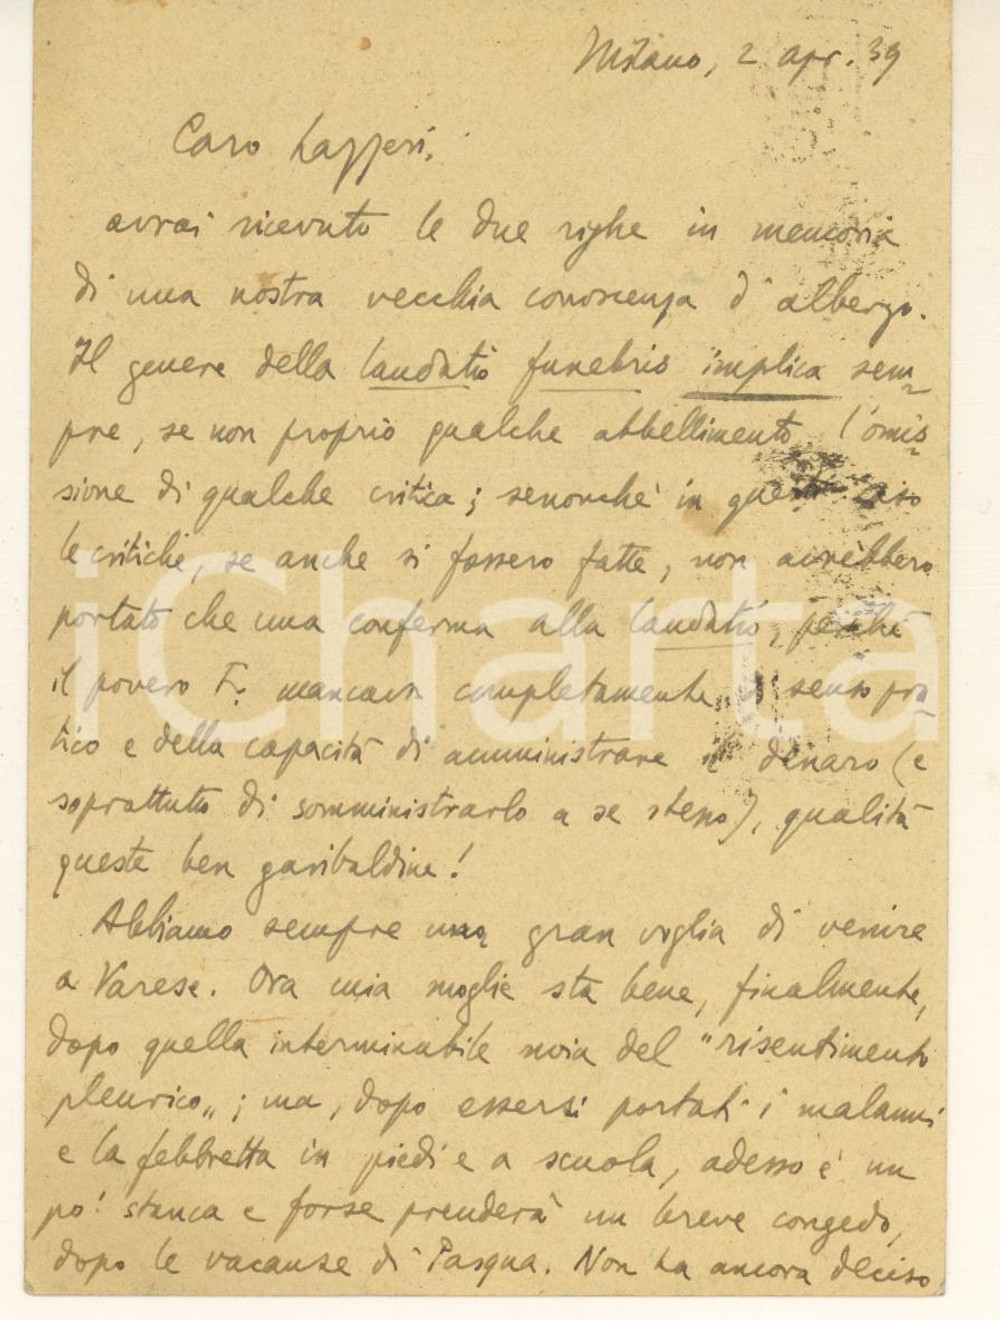 Milano, 2 apr. 39
Caro Lazzeri,
avrai ricevuto le due righe in memoria
di una nostra vecchia conoscenza d'albergo.
Il genere della laudatio funebris implica sem-
pre, se non proprio qualche abbellimento l'omis-
sione di qualche critica; senonché in questo caso
le critiche, se anche si fossero fatte, non avrebbero
portato che una conferma alla laudatio, perché
il povero F. mancava completamente di senso pra-
tico e della capacità di amministrare il denaro (e
soprattutto di somministrarlo a se stesso), qualità
queste ben garibaldine!
Abbiamo sempre una gran voglia di venire
a Varese. Ora mia moglie sta bene, finalmente,
dopo quella interminabile noia del "risentimento
pleurico„; ma, dopo essersi portati i malanni
e la febbretta in piedi e a scuola, adesso è un
po' stanca e forse prenderà un breve congedo,
dopo le vacanze di Pasqua. Non ha ancora deciso
iCharta